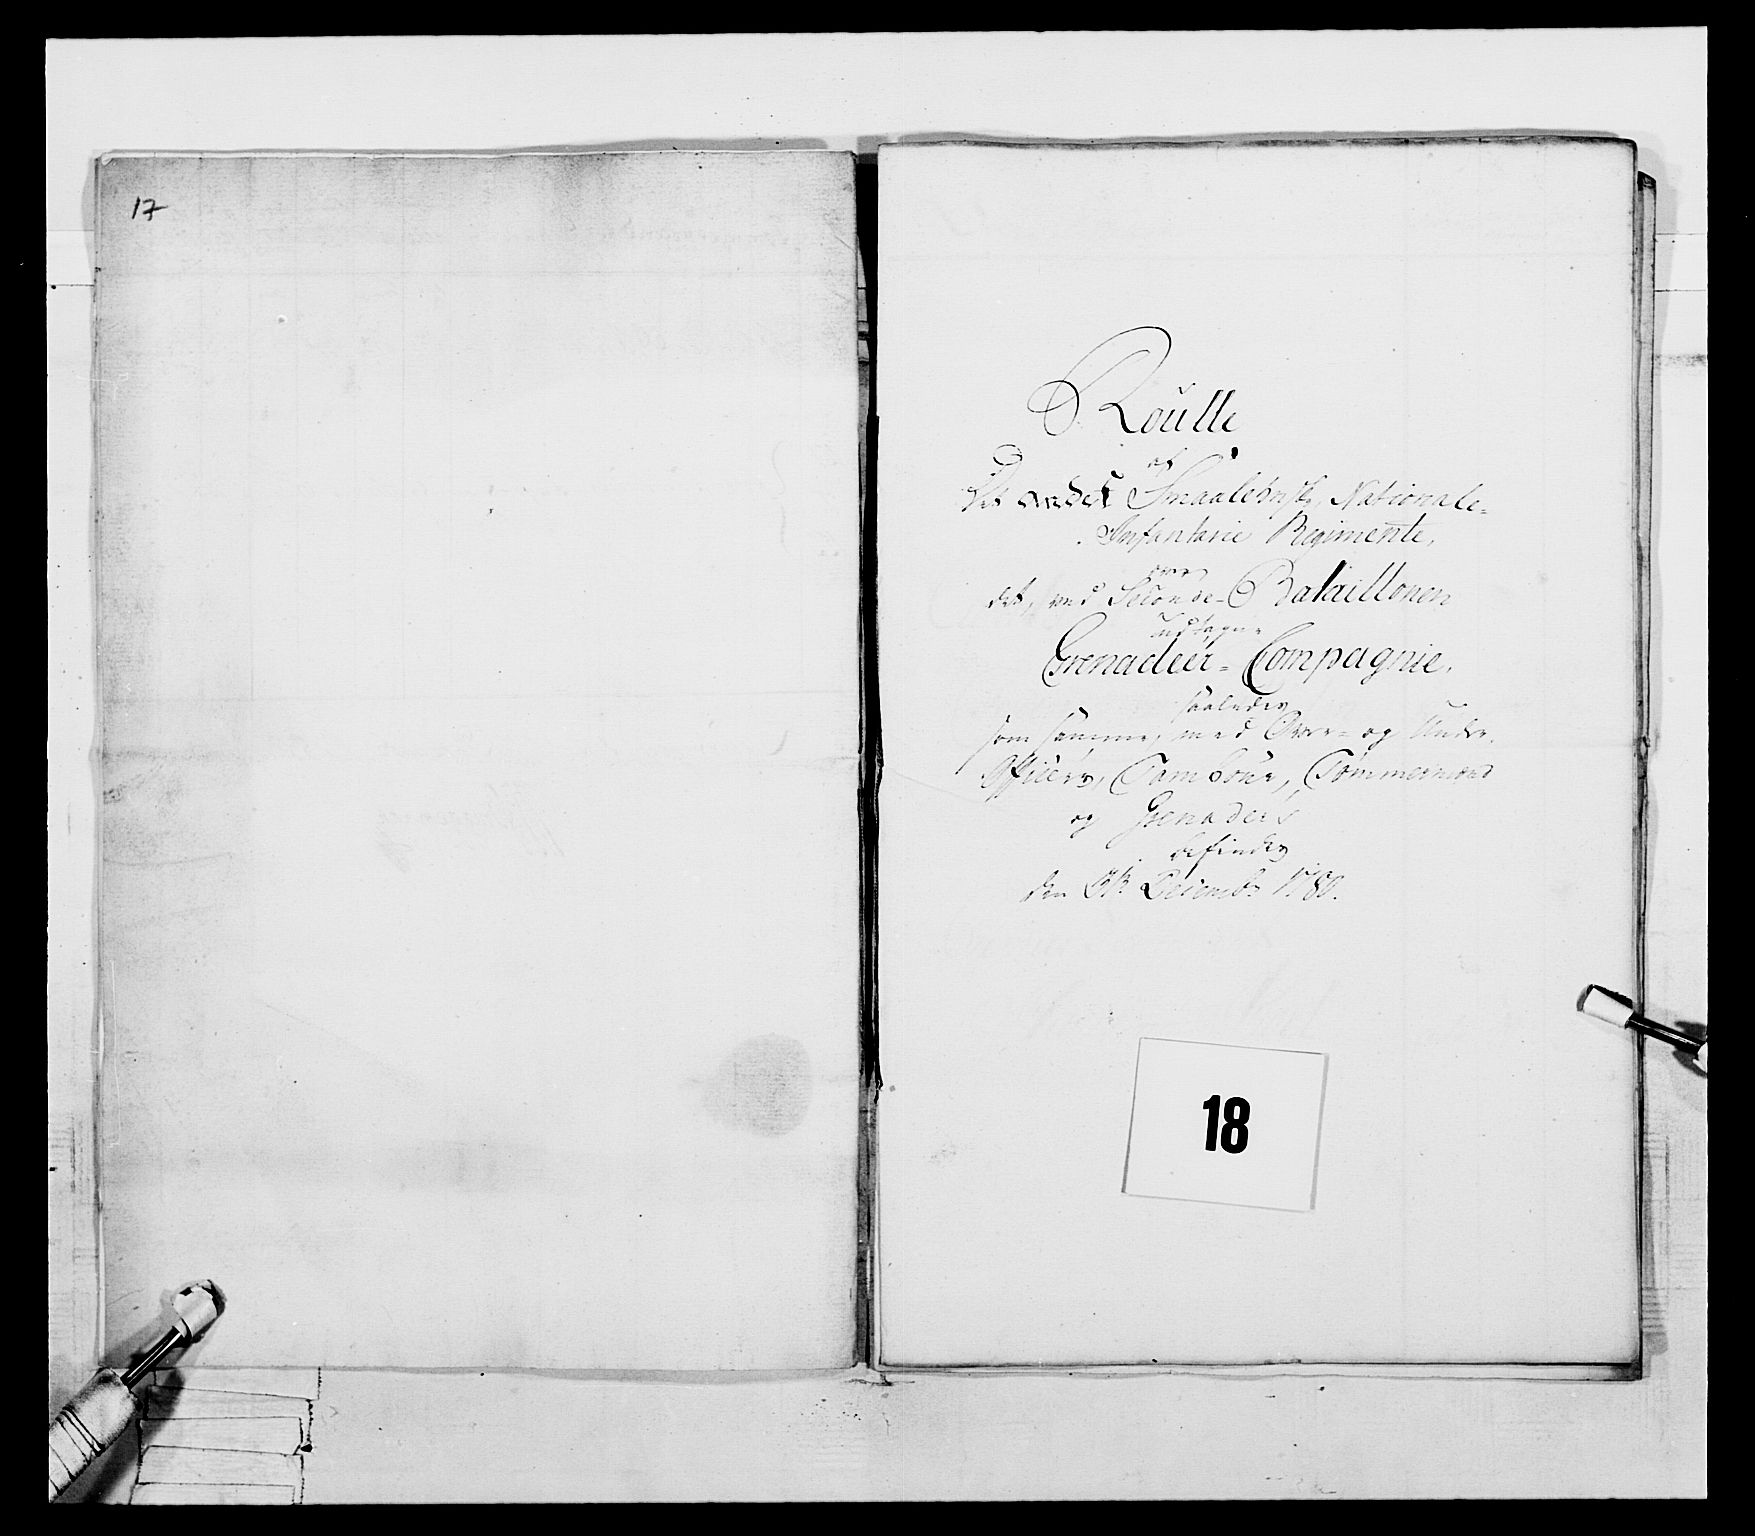 17
Roulle
af
Det andet Smaalehnske Nationale-
Infanterie Regimente,
over
det, ved Seconde-Bataillonen
udtagne
Grenadeer-Compagnie,
saaledes
som samme, med Over- og Under-
Officers, Tambour, Tømmermænd
og Grenadeers
befindes
den Decembr 1780.
18